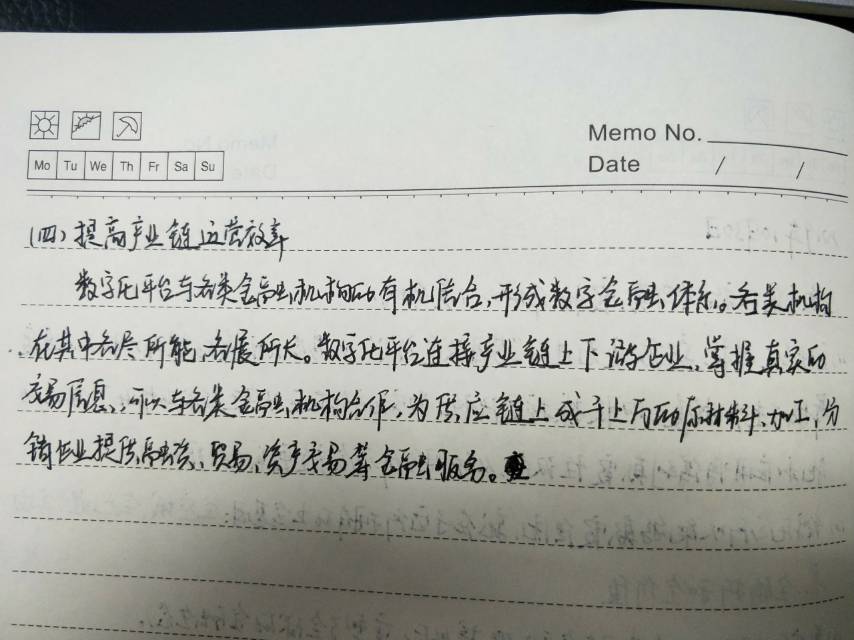 Memo No.
Mo Tu We Th Fr Sa Su
Date / /
(四)提高产业链运营效率
数字化平台与各类金融机构的有机结合,形成数字金融体系。各类机构
在其中各尽所能,各展所长。数字化平台连接产业链上下游企业,掌握真实的
交易信息,可以与各类金融机构合作,为供应链上成千上万的原材料、加工、分
销企业提供融资、贸易、资产交易等金融服务。